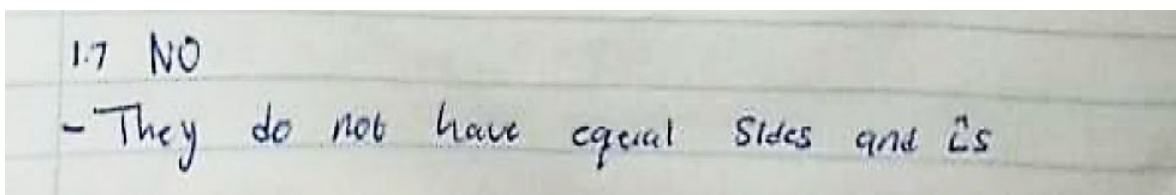 1.7 NO
- They do not have equal sides and ∠̂s